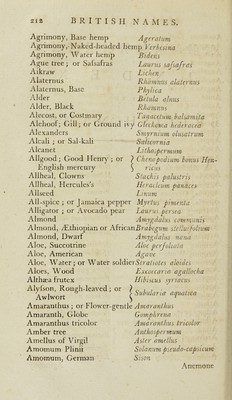 212 BRITISH NAMES.
Agrimony, Base hemp Ageratum
Agrimony, Naked-headed hemp Verbesina
Agrimony, Water hemp Bidens
Ague tree; or Safsafras Laurus safsafras
Aikraw Lichen
Alaternus Rhamnus alaternus
Alaternus, Base Phylica
Alder Betula alnus
Alder, Black Rhamnus
Alecost, or Costmary Tanacetum balsamita
Alehoof; Gill; or Ground ivy Glechoma hederacea
Alexanders Smyrnium olusatrum
Alcali; or Sal-kali Salicornia
Alcanet Lithospermum
Allgood; Good Henry; or } Chenopodium bonus Hen-
English mercury } ricus
Allheal, Clowns Stachis palustris
Allheal, Hercules's Heracleum panaces
Allseed Linum
All-spice; or Jamaica pepper Myrtus pimenta
Alligator; or Avocado pear Laurus persea
Almond Amygdalus communis
Almond, Æthiopian or African Brabegum stellucifolium
Almond, Dwarf Amygdalus nana
Aloe, Succotrine Aloe perfoliata
Aloe, American Agave
Aloe, Water; or Water soldier Stratiotes aloides
Aloes, Wood Excoecaria agallocha
Althæa frutex Hibiscus syriacus
Alyson, Rough-leaved; or } Subularia aquatica
Awlwort }
Amaranthus; or Flower-gentle Amaranthus
Amaranth, Globe Gomphrena
Amaranthus tricolor Amaranthus tricolor
Amber tree Anthospermum
Amellus of Virgil Aster amellus
Amomum Plinii Solanum pseudo-capsicum
Amomum, German Sison
Anemone